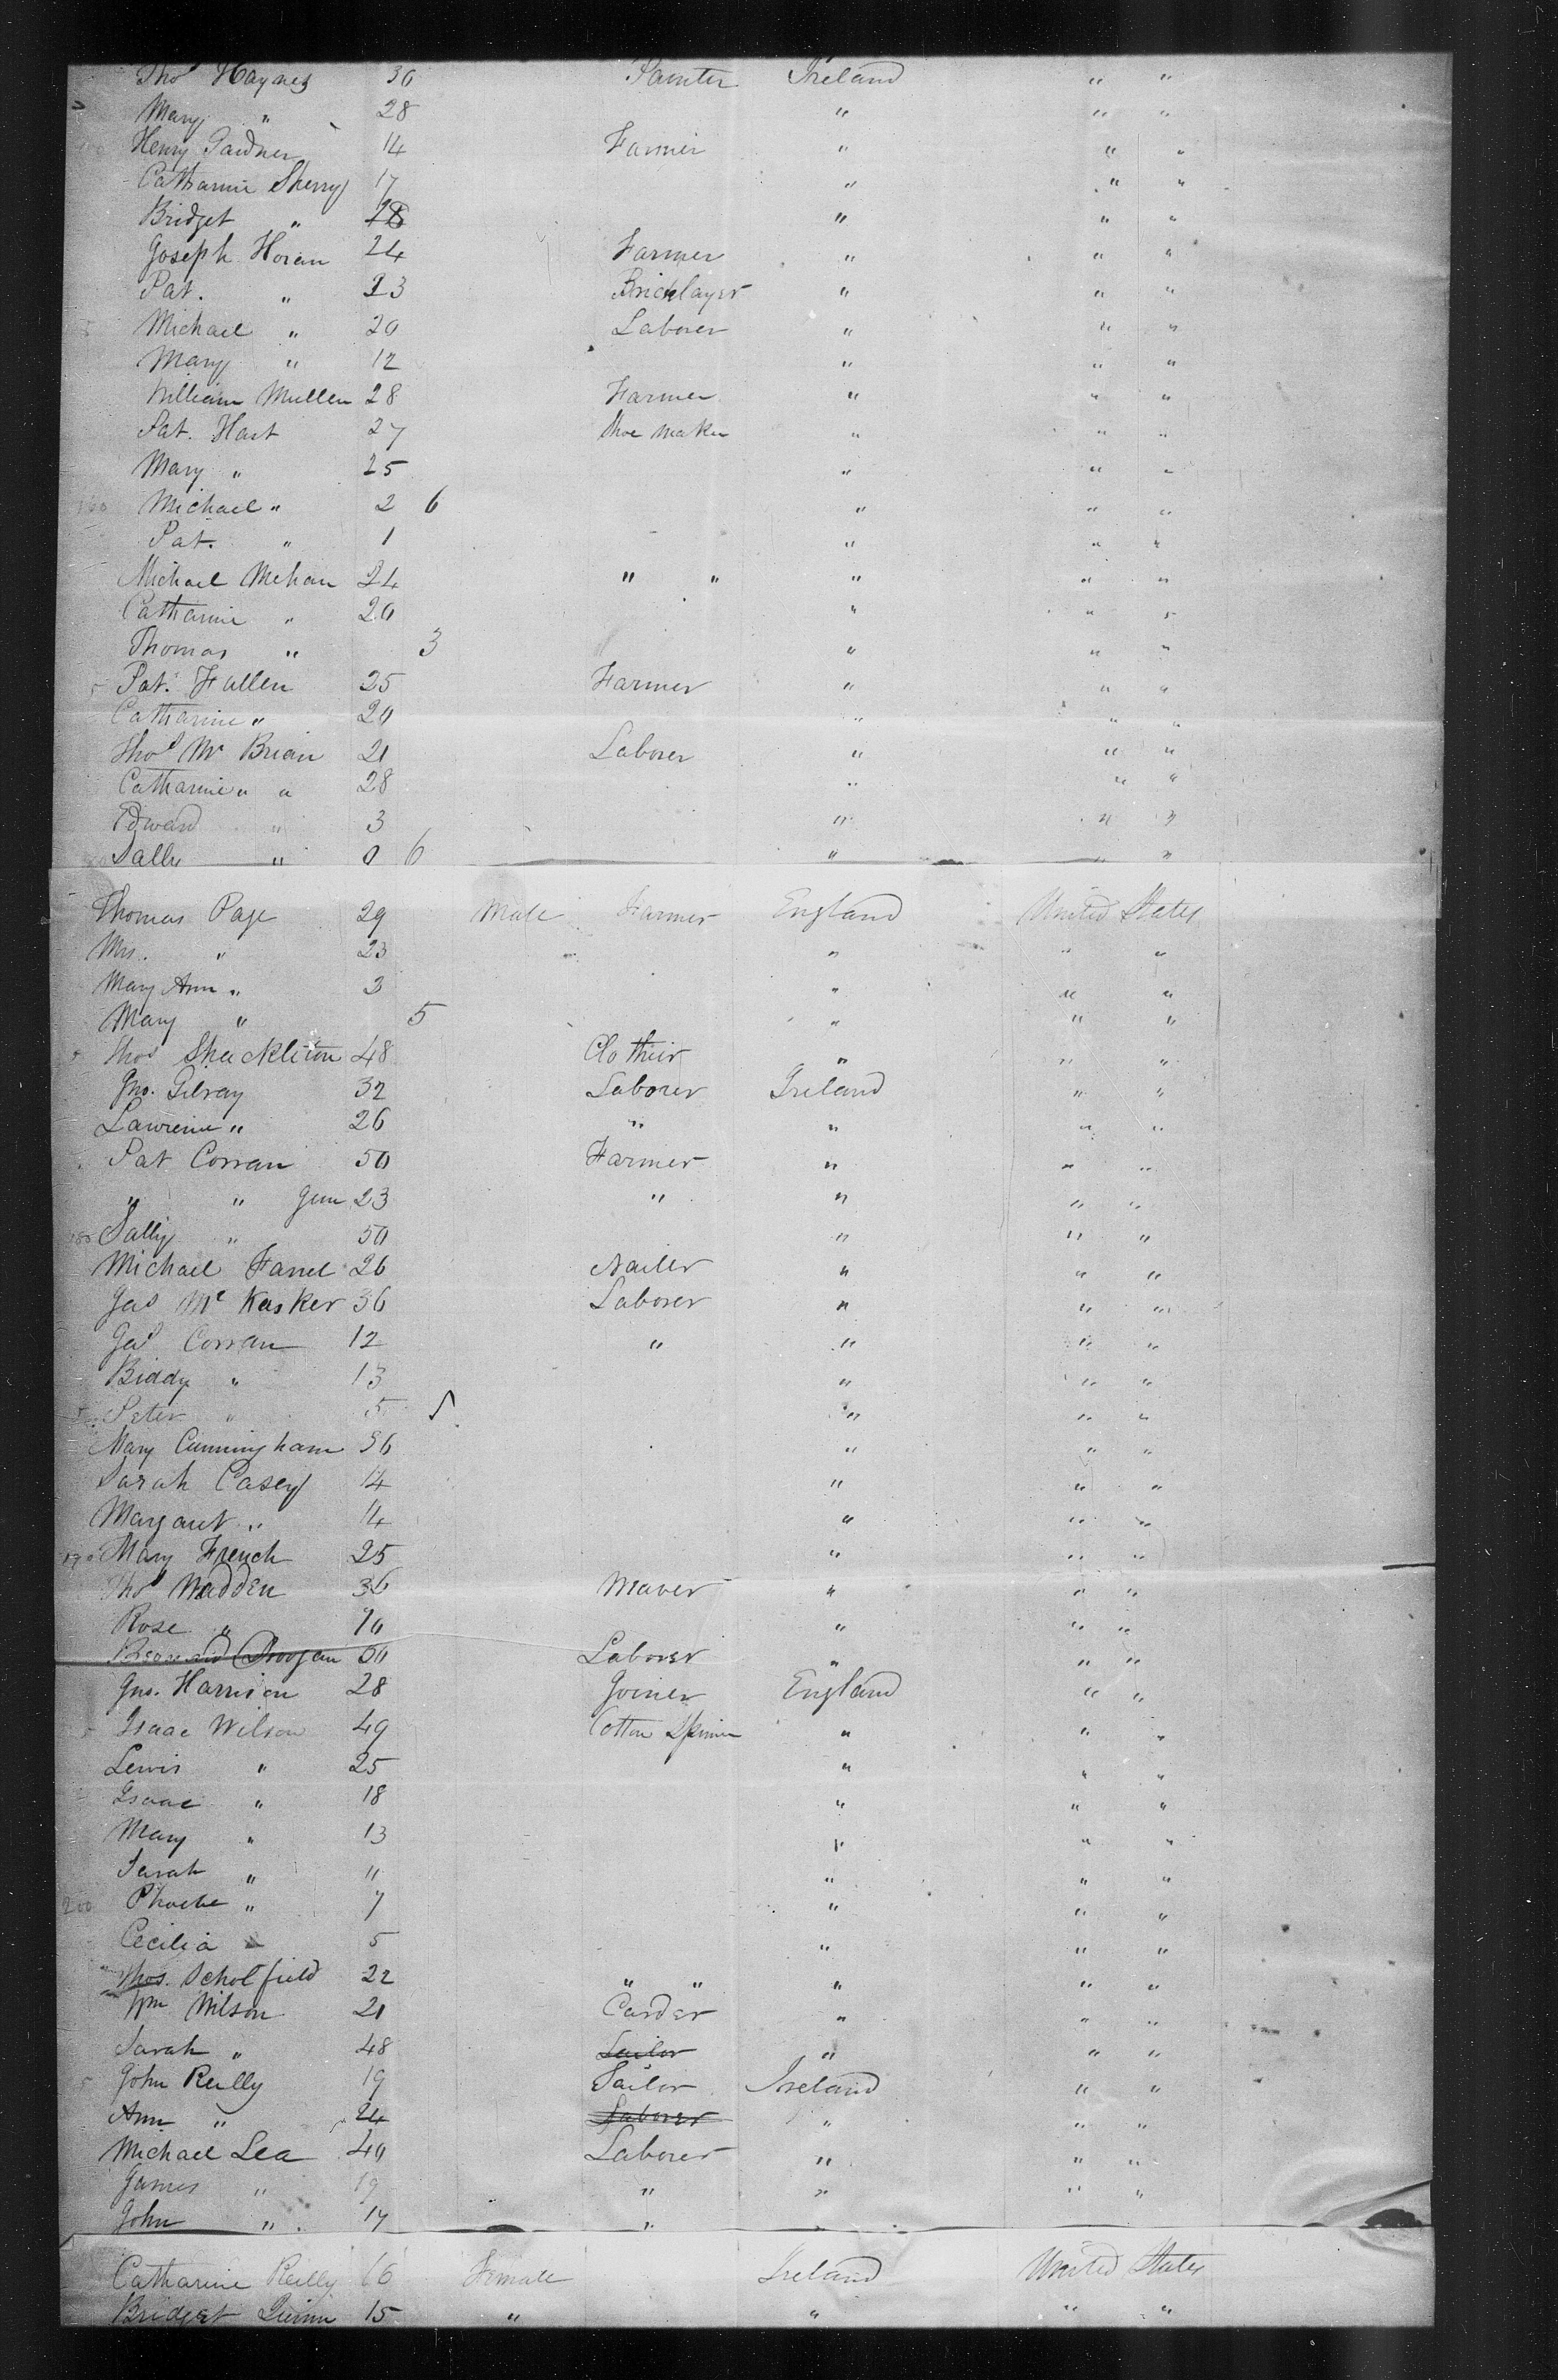 Thos Haynes 30 Painter Ireland " "
Mary " 28 " " "
Henry Gardner 14 Farmer " " "
Catharine Sherry 17 " " "
Bridget " 18 " " "
Joseph Horan 24 Farmer " " "
Pat. " 23 Bricklayer " " "
Michael " 20 Laborer " " "
Mary " 12 " " "
William Mullen 28 Farmer " " "
Pat. Hart 27 Shoe Maker " " "
Mary " 25 " " "
Michael " 2 6 " " "
Pat. " 1 " " "
Michael Mehan 24 " " " " "
Catharine " 20 " " "
Thomas " 3 " " "
5 Pat. Fallen 25 Farmer " " "
Catharine " 20 " " "
Thos Mc Brian 21 Laborer " " "
Catharine " " 28 " " "
Edward " 3 " " "
Sally " 0 6 " " "
Thomas Page 29 Male Farmer England United States
Mrs. " 23 " " "
Mary Ann " 3 " " "
Mary " 5 " " "
Thos Shackleton 48 Clothier " " "
Jno. Gilray 32 Laborer Ireland " "
Lawrence " 26 " " " "
Pat Corran 50 Farmer " " "
" " Jun 23 " " " "
180 Sally " 50 " " "
Michael Farrel 26 Nailer " " "
Jas Mc Kasker 36 Laborer " " "
Jas Corran 12 " " " "
Biddy " 13 " " "
Peter " 5 " " "
Mary Cunningham 36 " " "
Sarah Casey 14 " " "
Margaret " 14 " " "
190 Mary French 25 " " "
Thos Madden 36 " " "
Rose " " " "
Laborer " " "
Jno. Harrison 28 Joiner England " "
5 Isaac Wilson 49 Cotton Spinner " " "
Lewis " 25 " " "
Isaac " 18 " " "
Mary " 13 " " "
Sarah " 11 " " "
200 Phoebe " 7 " " "
Cecilia " 5 " " "
Thos. Scholfield 22 " " " " "
Wm Wilson 21 Carder " " "
Sarah " 48 " " "
5 John Reilly 19 Tailor Ireland " "
Ann " 24 Laborer " " "
Michael Lea 40 Laborer " " "
James " 19 " " " "
John " 17 " " " "
Catharine Reilly 16 Female Ireland United States
Bridget Quinn 15 " " " "